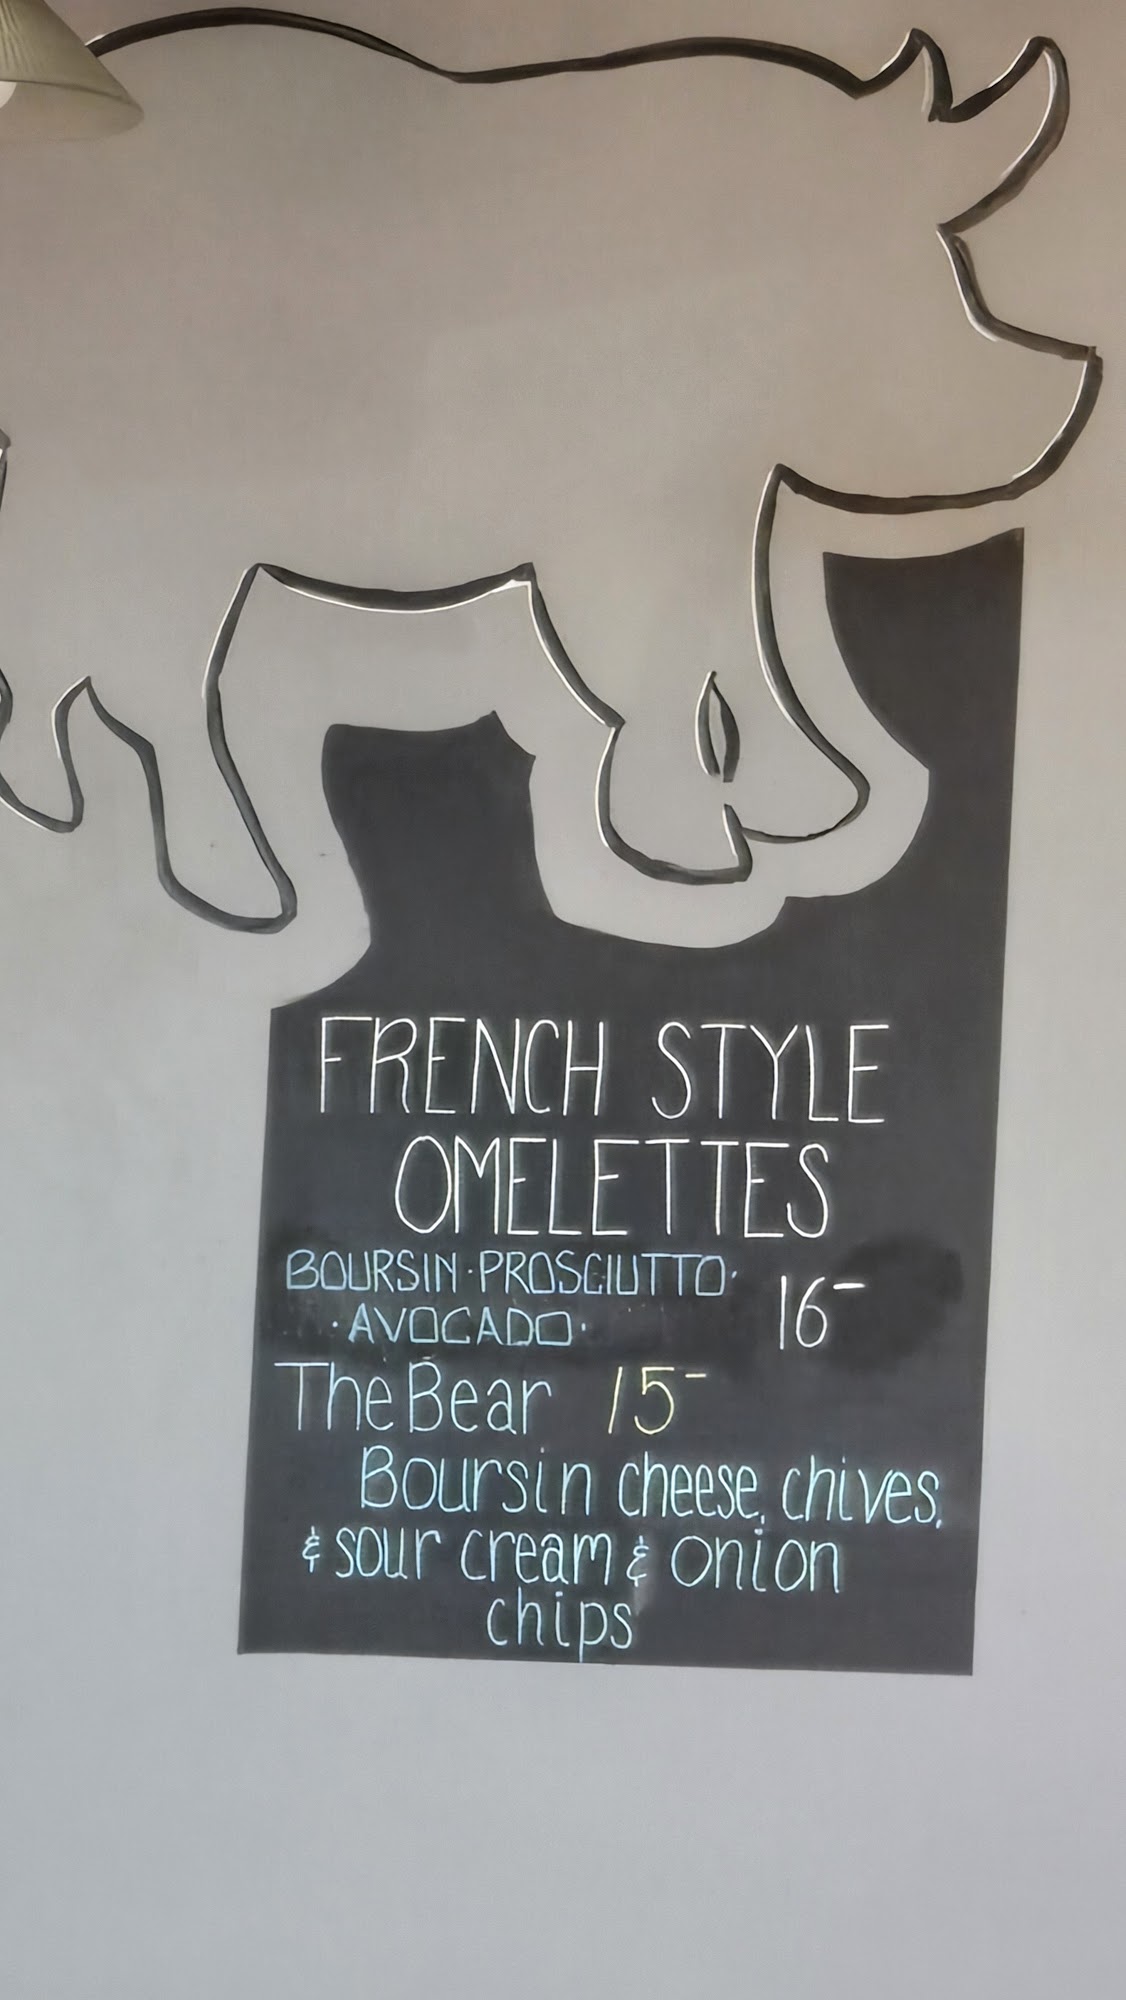 FRENCH STYLE
OMELETTES
BOURSIN · PROSCIUTTO ·
· AVOCADO · 16-
The Bear 15-
Boursin cheese, chives,
& sour cream & onion
chips